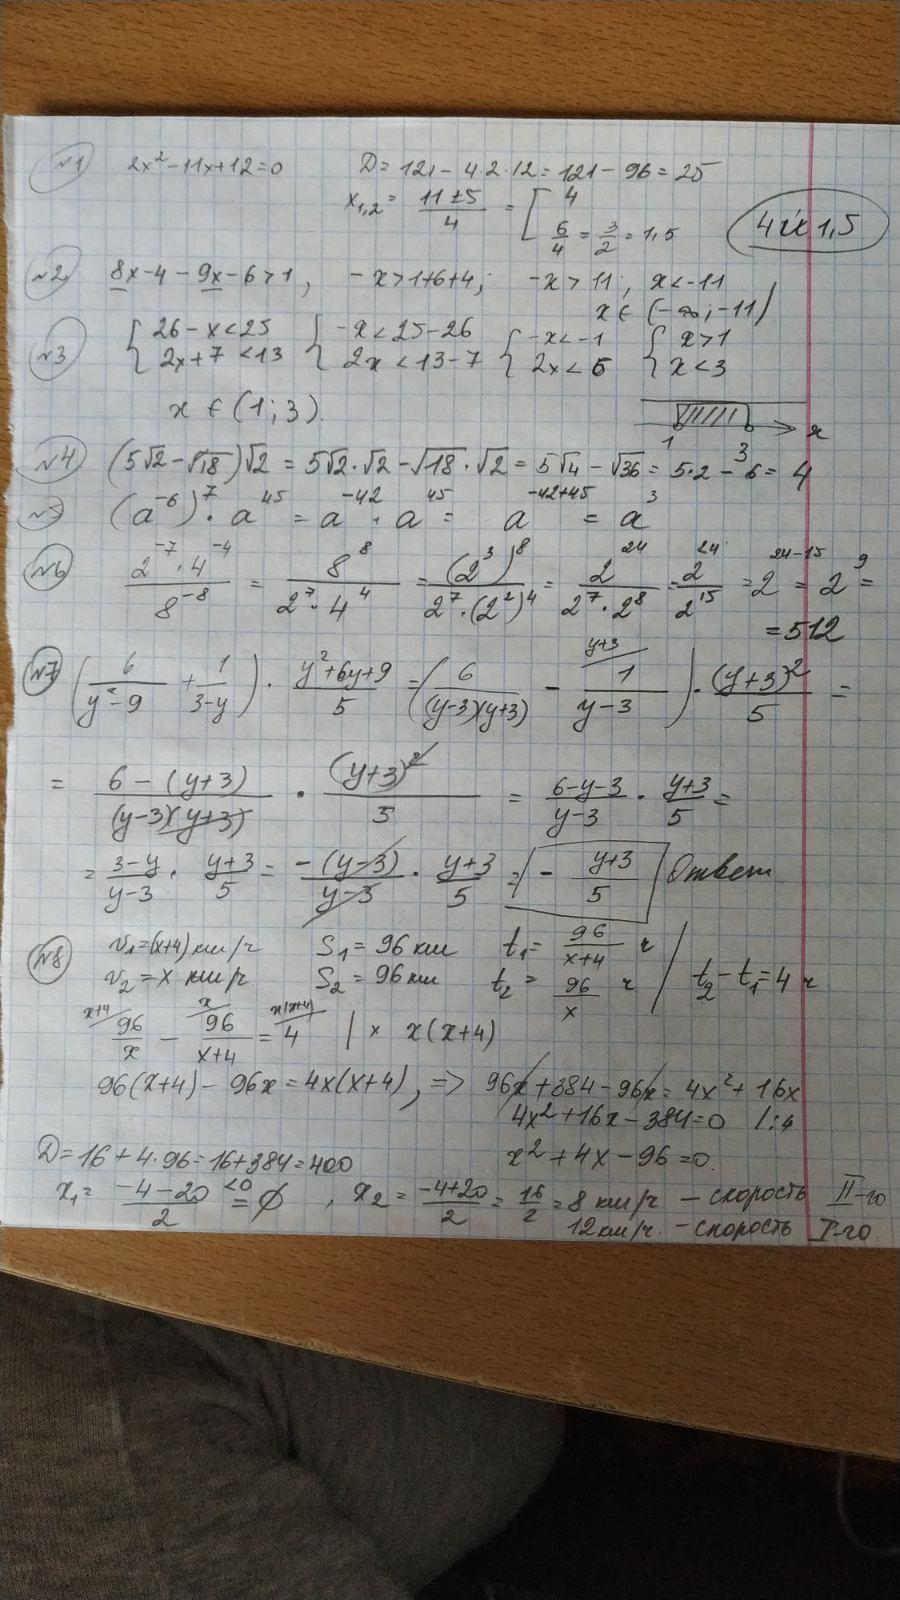 №1 2x² - 11x + 12 = 0 D = 121 - 4·2·12 = 121 - 96 = 25
x₁,₂ = (11 ± 5)/4 = [ 4
6/4 = 3/2 = 1,5
4 и 1,5
№2 8x - 4 - 9x - 6 > 1, -x > 1+6+4; -x > 11; x < -11
x ∈ (-∞; -11)
№3 { 26 - x < 25 { -x < 25 - 26 { -x < -1 { x > 1
2x + 7 < 13 2x < 13 - 7 2x < 6 x < 3
x ∈ (1; 3). 1 3 x
№4 (5√2 - √18)√2 = 5√2·√2 - √18·√2 = 5√4 - √36 = 5·2 - 6 = 4
№5 (a⁻⁶)⁷ · a⁴⁵ = a⁻⁴² · a⁴⁵ = a⁻⁴²⁺⁴⁵ = a³
№6 (2⁻⁷·4⁻⁴)/8⁻⁸ = 8⁸/(2⁷·4⁴) = (2³)⁸/(2⁷·(2²)⁴) = 2²⁴/(2⁷·2⁸) = 2²⁴/2¹⁵ = 2²⁴⁻¹⁵ = 2⁹ =
= 512
№7 (6/(y²-9) + 1/(3-y)) · (y²+6y+9)/5 = (6/((y-3)(y+3)) - 1/(y-3) y+3) · (y+3)²/5 =
= (6 - (y+3))/((y-3)(y+3)) · (y+3)²/5 = (6-y-3)/(y-3) · (y+3)/5 =
= (3-y)/(y-3) · (y+3)/5 = -(y-3)/(y-3) · (y+3)/5 = - (y+3)/5 Ответ
№8 v₁ = (x+4) км/ч S₁ = 96 км t₁ = 96/(x+4) ч
v₂ = x км/ч S₂ = 96 км t₂ = 96/x ч t₂ - t₁ = 4 ч
x+4 96/x - x 96/(x+4) = x(x+4) 4 | × x(x+4)
96(x+4) - 96x = 4x(x+4), => 96x + 384 - 96x = 4x² + 16x
4x² + 16x - 384 = 0 /:4
D = 16 + 4·96 = 16 + 384 = 400 x² + 4x - 96 = 0.
x₁ = (-4-20)/2 <0 = ∅, x₂ = (-4+20)/2 = 16/2 = 8 км/ч - скорость II-го
12 км/ч. - скорость I-го